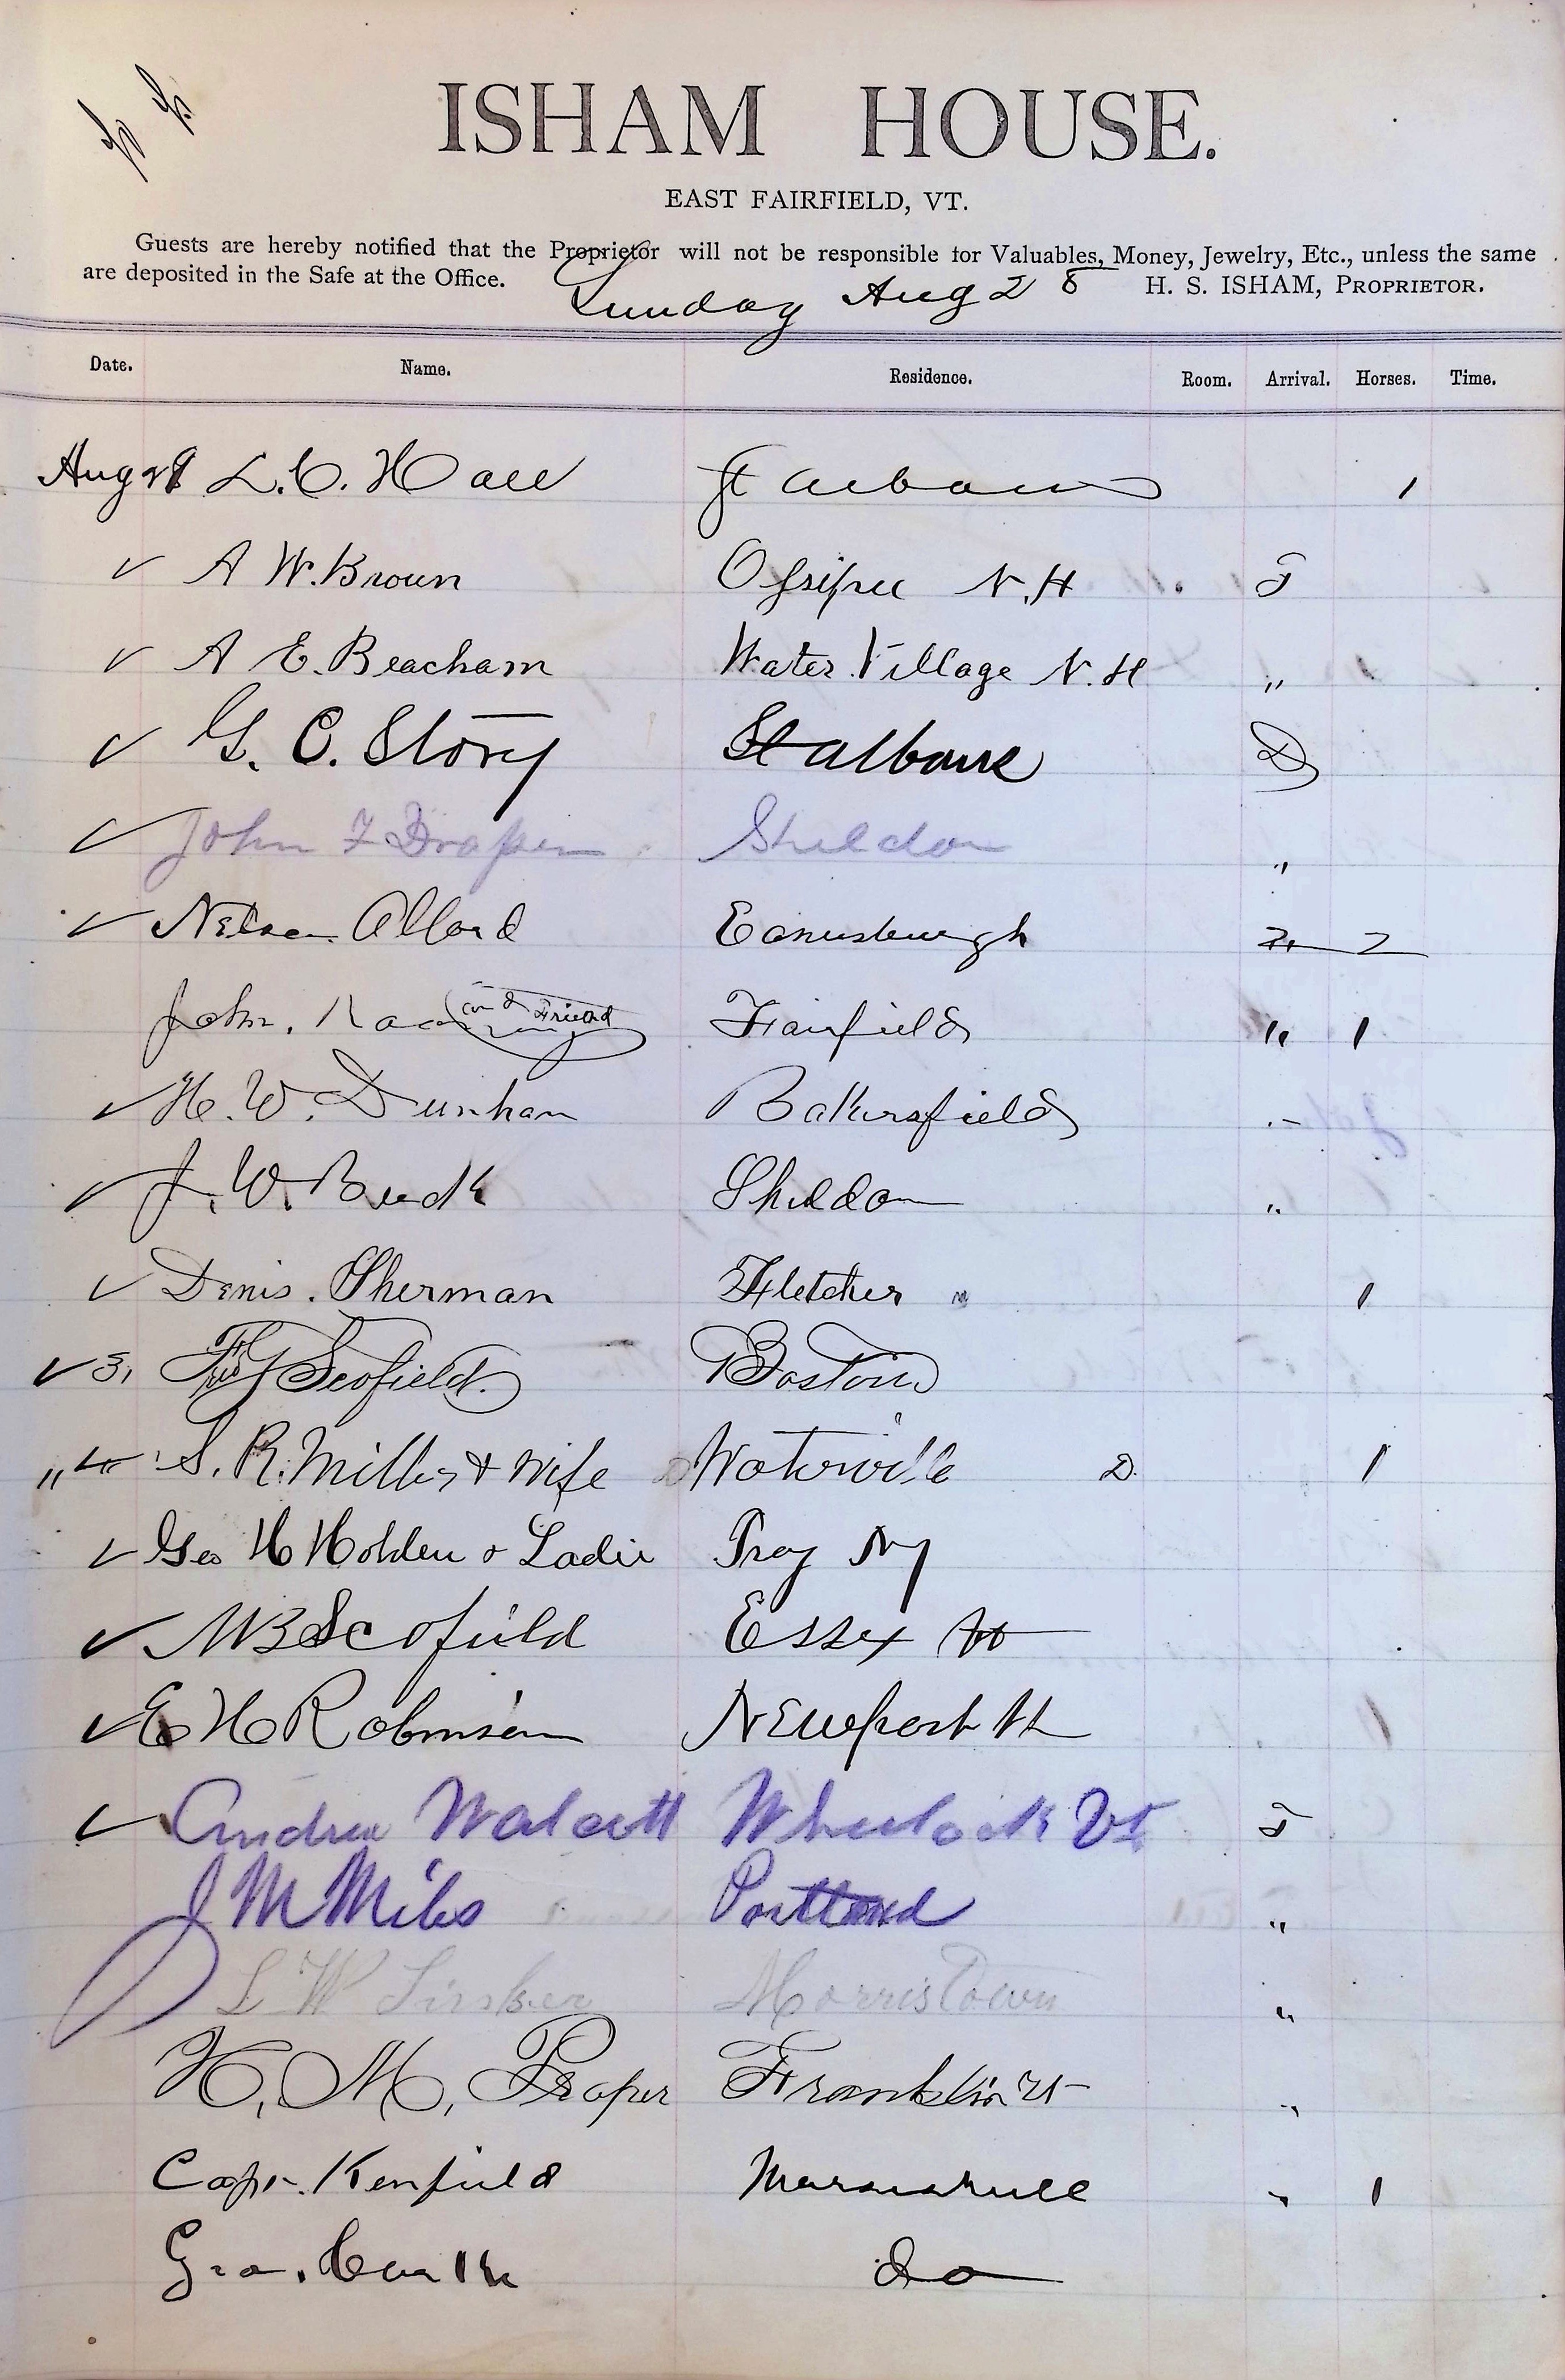 ISHAM HOUSE.
EAST FAIRFIELD, VT.
Guests are hereby notified that the Proprietor will not be responsible for Valuables, Money, Jewelry, Etc., unless the same
are deposited in the Safe at the Office. H. S. ISHAM, PROPRIETOR.
Sunday Aug 28
Date. Name. Residence. Room. Arrival. Horses. Time.
Aug 29 L. C. Hall St Albans 1
✓ A W. Brown Ossipee N.H T
✓ A E. Beacham Water Village N.H "
✓ G. C. Story St Albans D
✓ John F Draper Sheldon "
✓ Nelson Allard Enosburgh 2
John. and Friend Fairfield " 1
✓ H. W. Dunham Bakersfield "
✓ J. W. Buck Sheldon "
✓ Denis. Sherman Fletcher 1
✓ 3, Scofield. Boston
" S. R. Miller & Wife Waterville D. 1
✓ Geo H Holden & Ladie Troy NY
✓ M B Scofield Essex Vt
✓ E H Robinson Newport Vt
✓ Andrew Walcott Wheelock Vt T
J M Miles Portland "
L W Morristown "
H. M. Draper Franklin Vt "
Capt. Kenfield Morrisville " 1
Geo. do